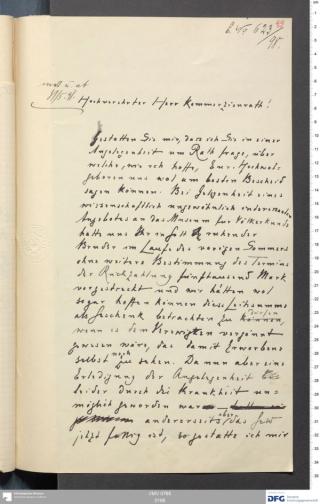 Hochverehrter Herr Kommerzienrath!
Gestatten Sie mir, dass ich Sie in einer
Angelegenheit um Rath frage, über
welche, wie ich hoffe, Euer Hochwohl-
geboren uns wol am besten Bescheid
sagen können. Bei Gelegenheit eines
wissenschaftlich ungewöhnlich interessanten
Angebotes an das Museum für Völkerkunde
hatte uns Ihr in Gott ruhender
Bruder im Laufe des vorigen Sommers
ohne weitere Bestimmung des Termins
der Rückzahlung fünftausend Mark
vorgestreckt und wir hätten wol
sogar hoffen können diese Leihsumme
als Geschenk betrachten zu dürfen,
wenn es dem Verewigten vergönnt
gewesen wäre, das damit Erworbene
selbst noch zu sehen. Da nun aber eine
Erledigung der Angelegenheit
leider durch die Krankheit un-
möglich geworden war
andererseits aber das
jetzt fällig ist, so gestatte ich mir
DFG